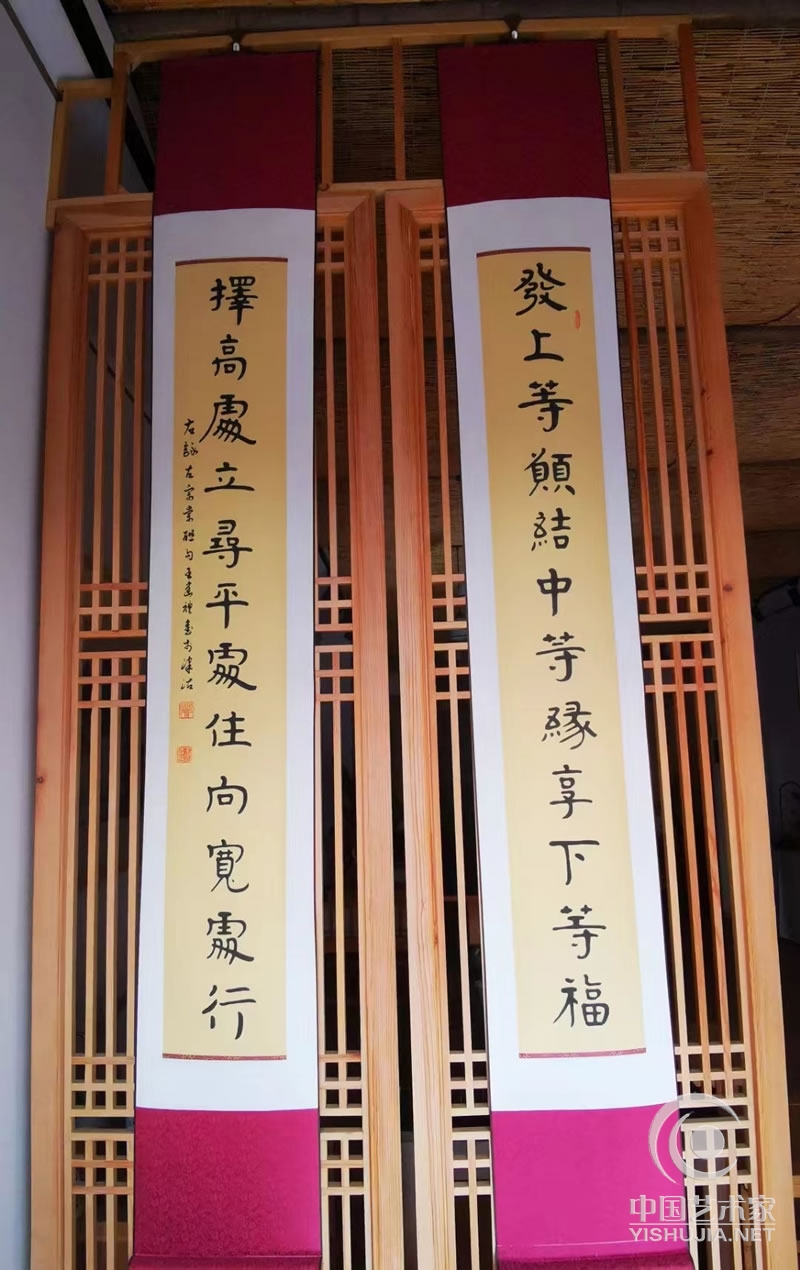 發上等願結中等緣享下等福
擇高處立尋平處住向寬處行
右錄左宗棠聯句
中国艺术家
YISHUJIA.NET